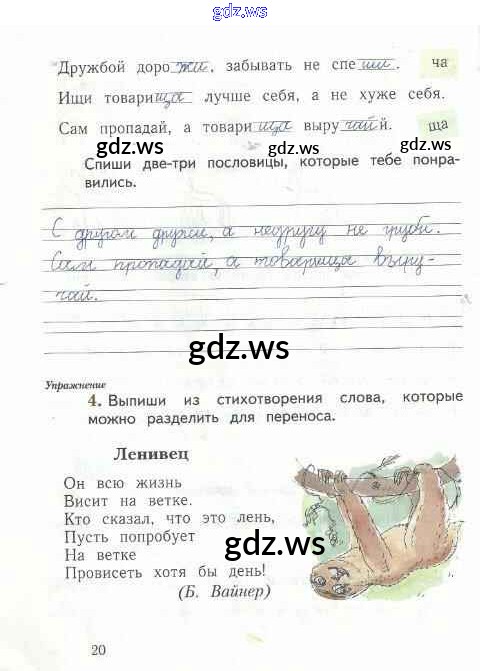 gdz.ws
Дружбой дорожи, забывать не спеши. ча
Ищи товарища лучше себя, а не хуже себя.
Сам пропадай, а товарища выручай. ща
gdz.ws
gdz.ws
Спиши две-три пословицы, которые тебе понра-
вились.
С другом дружи, а недругу не груби.
Сам пропадай, а товарища выру-
чай.
gdz.ws
Упражнение
4. Выпиши из стихотворения слова, которые
можно разделить для переноса.
Ленивец
Он всю жизнь
Висит на ветке.
Кто сказал, что это лень,
Пусть попробует
На ветке
Провисеть хотя бы день!
(Б. Вайнер)
gdz.ws
20
gdz.ws